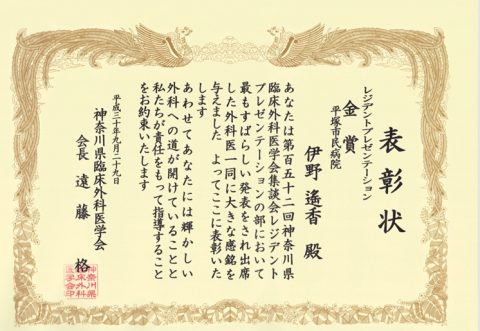 表彰状
レジデントプレゼンテーション
金賞
平塚市民病院
伊野遙香 殿
あなたは第百五十二回神奈川県
臨床外科医学会集談会レジデント
プレゼンテーションの部において
最もすばらしい発表をされ出席
した外科医一同に大きな感銘を
与えました よってここに表彰いた
します
あわせてあなたには輝かしい
外科への道が開けていることと
私たちが責任をもって指導すること
をお約束いたします
平成三十年九月二十九日
神奈川県臨床外科医学会
会長 遠藤 格
神奈川県
臨床外科
医学会印